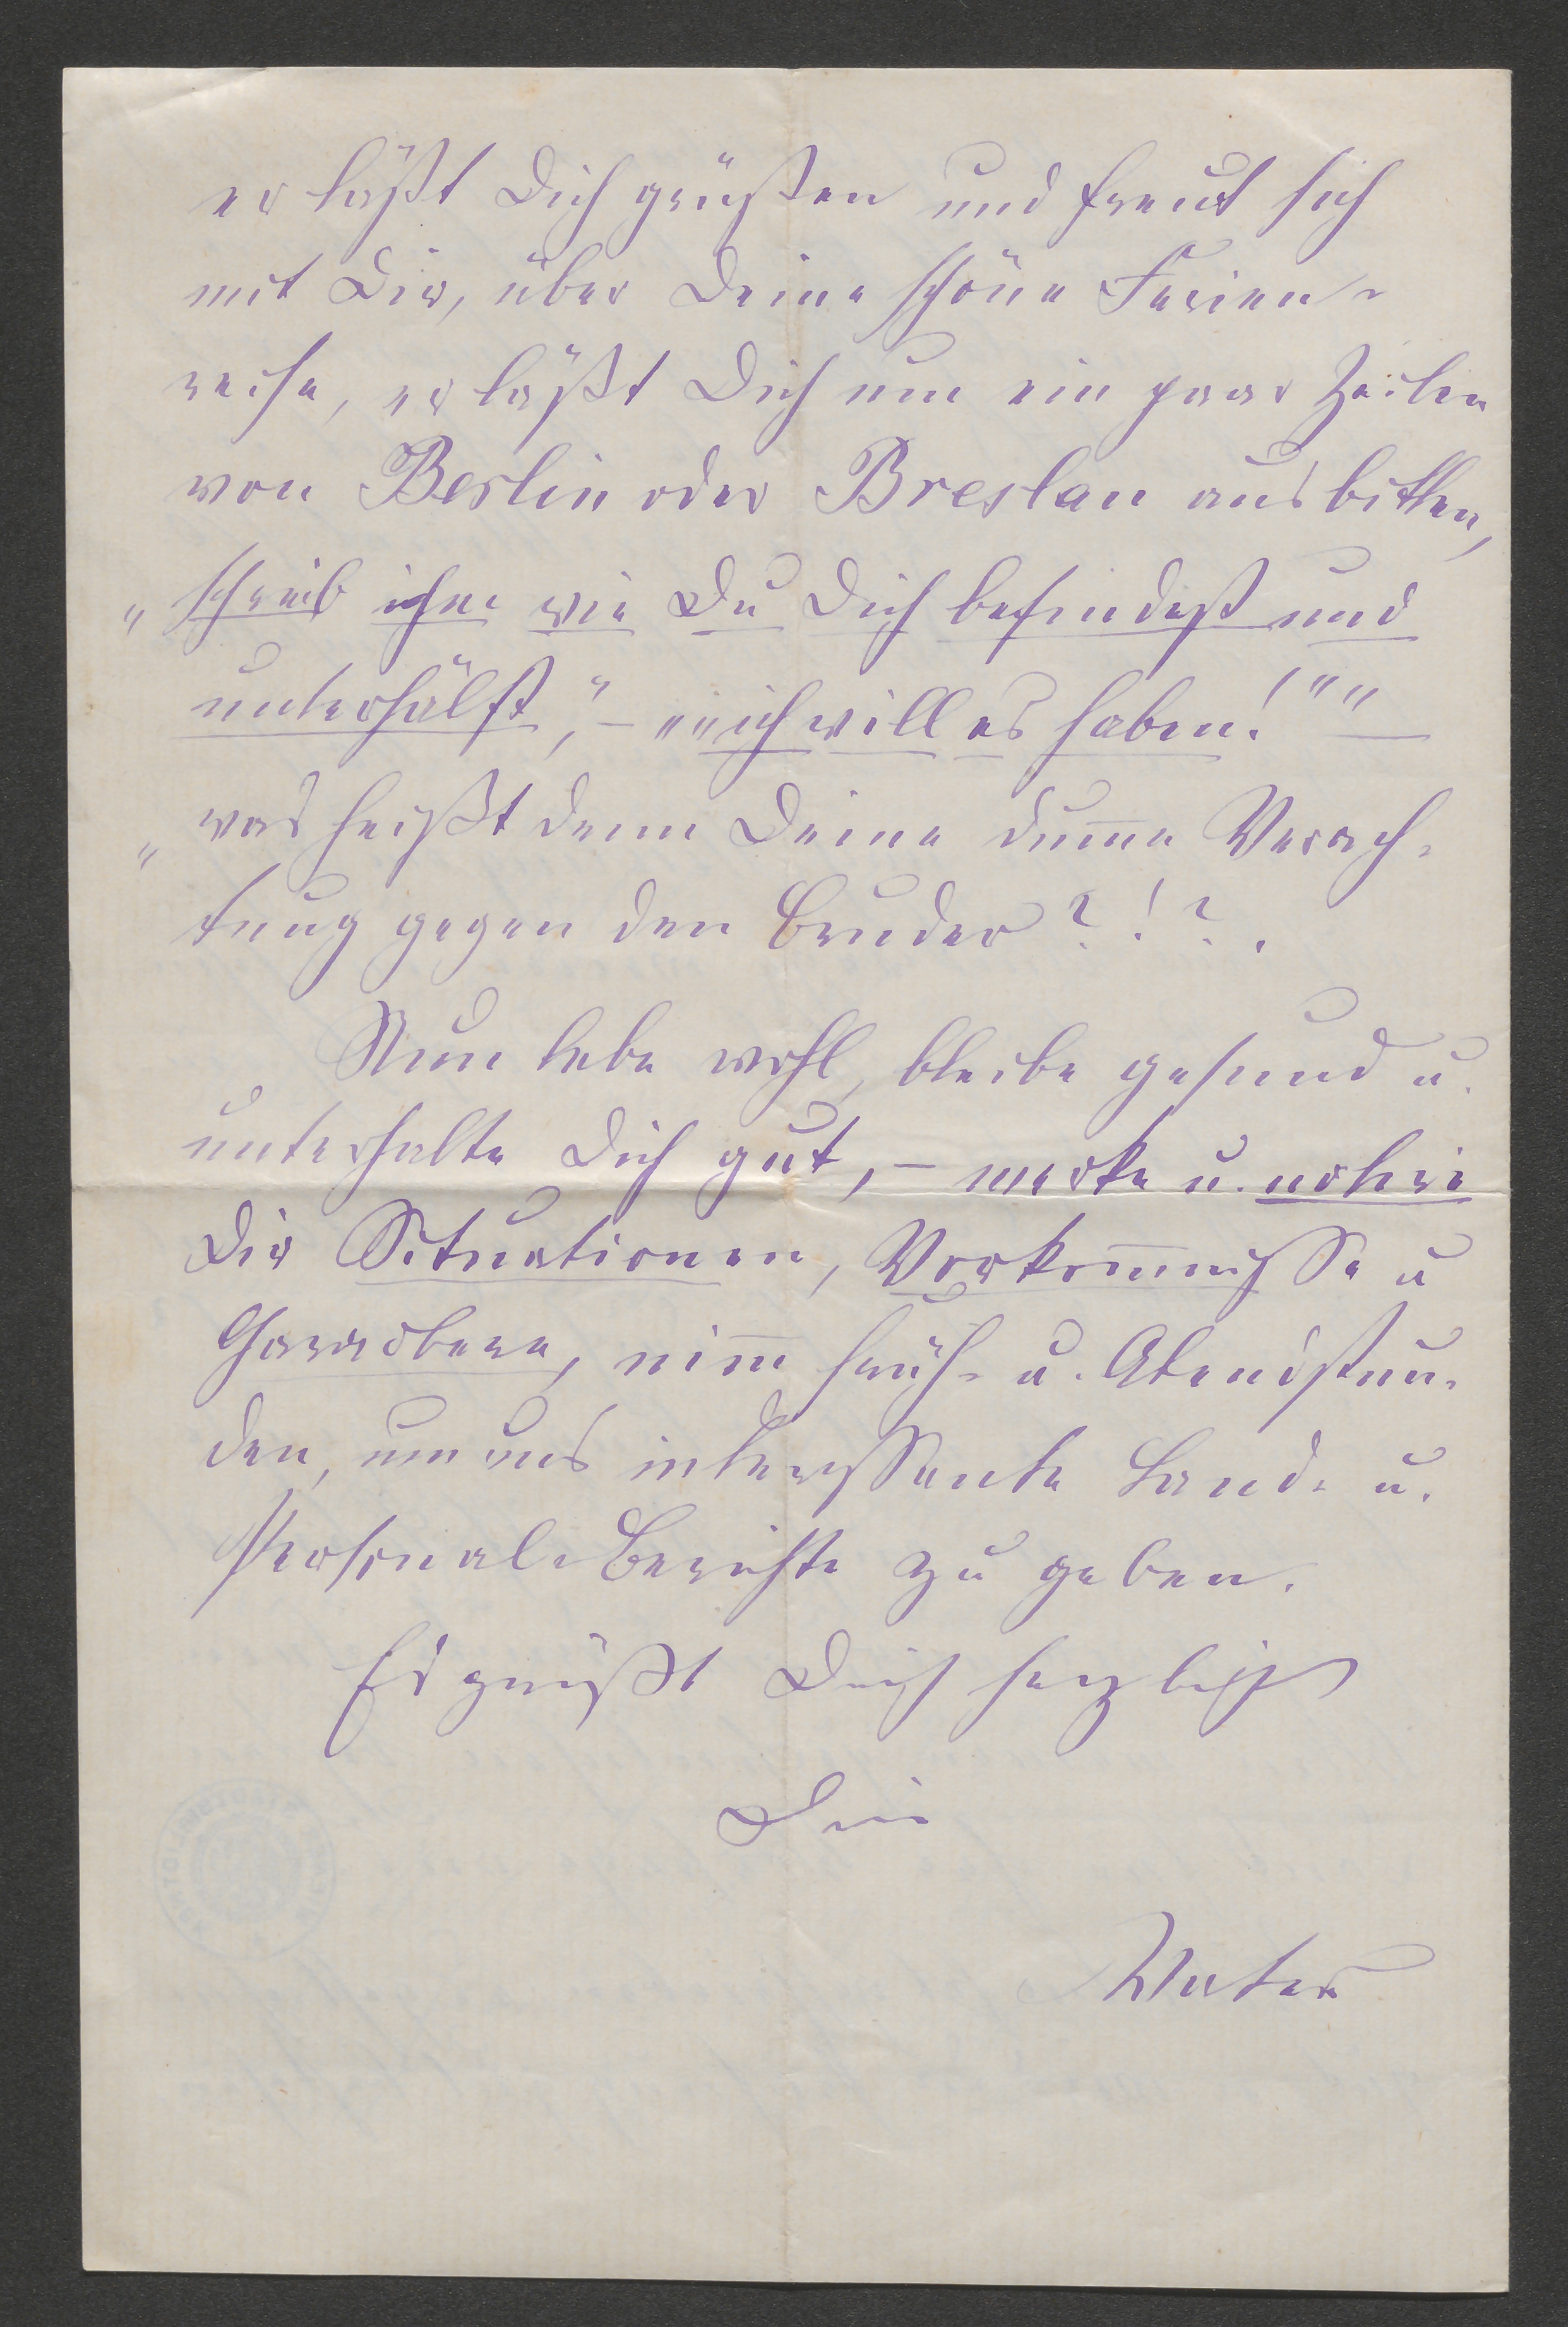 er läßt Dich grüßen und freut sich
mit Dir, über Deine schöne Ferien-
reise, er läßt Dich um ein paar Zeilen
von Berlin oder Breslau ausbitten,
„schreib ihm wie Du Dich befindest und
unterhälst,“ – „„ich will es haben!““
„was heißt denn Deine dum̅e Verach-
tung gegen den Bruder?!?.
Nun lebe wohl, bleibe gesund u.
unterhalte Dich gut, – merke u. notire
Dir Situationen, Vorkom̅nisse u
Charactere, nim̅ früh- u. Abendstun-
den, um uns interessante Land- u.
Personal-Berichte zu geben.
Es grüßt Dich herzlichst
Dein
Vater